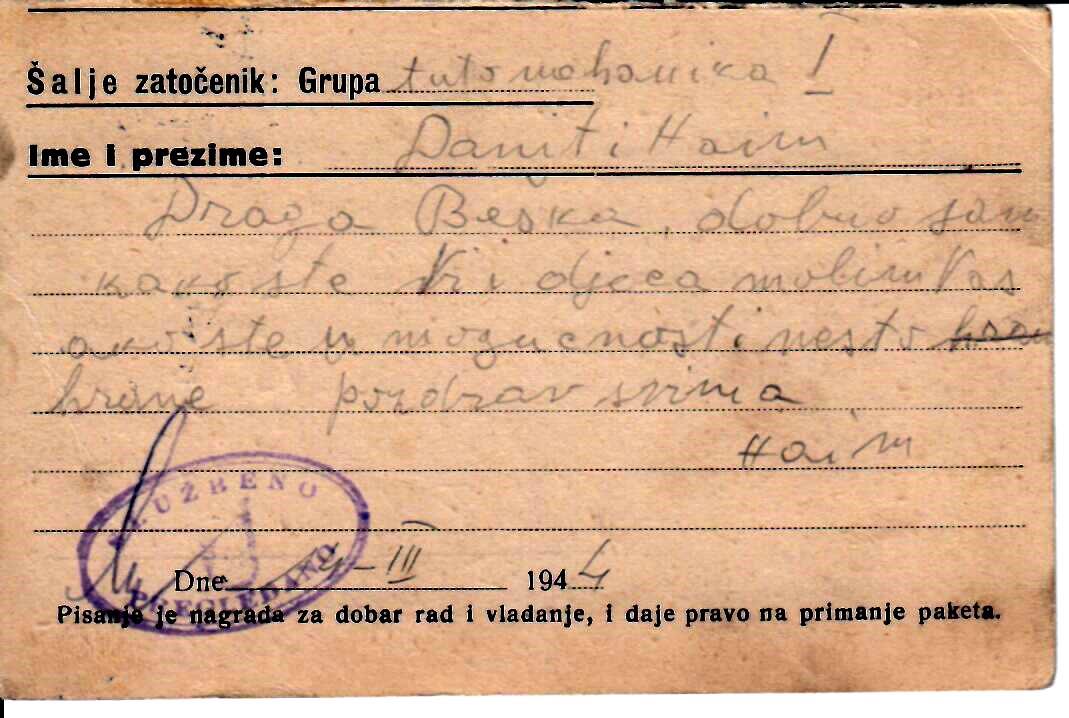 Šalje zatočenik: Grupa tutomehanika I
Ime i prezime: Daniti Haim
Draga Beska, dobro sam
kako ste Vi i djeca molim Vas
ako ste u mogucnosti nesto hran
hrane pozdrav svima
Haim
SLUŽBENO
PREGLEDANO
Dne 4-III 1944
Pisanje je nagrada za dobar rad i vladanje, i daje pravo na primanje paketa.